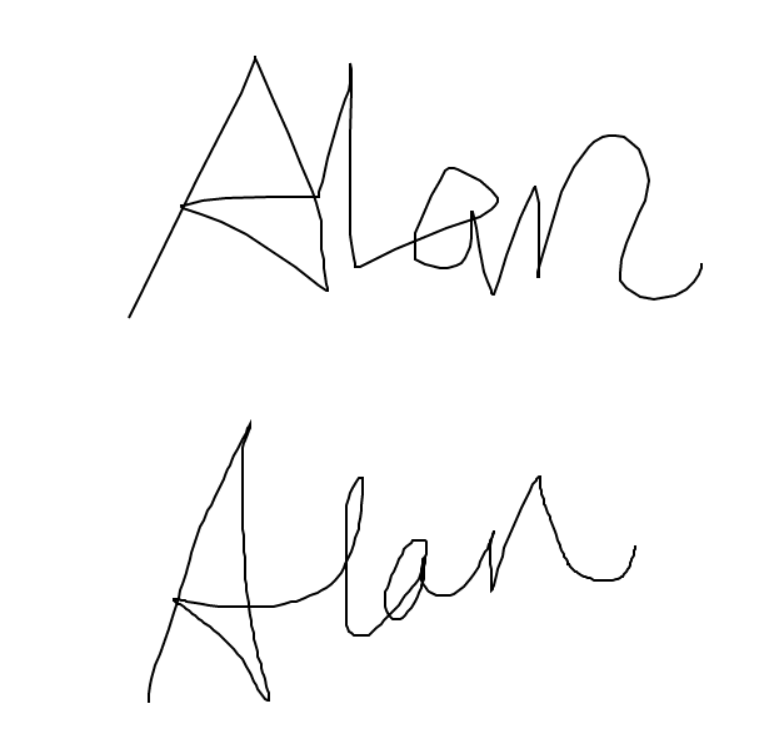 Alan
Alan